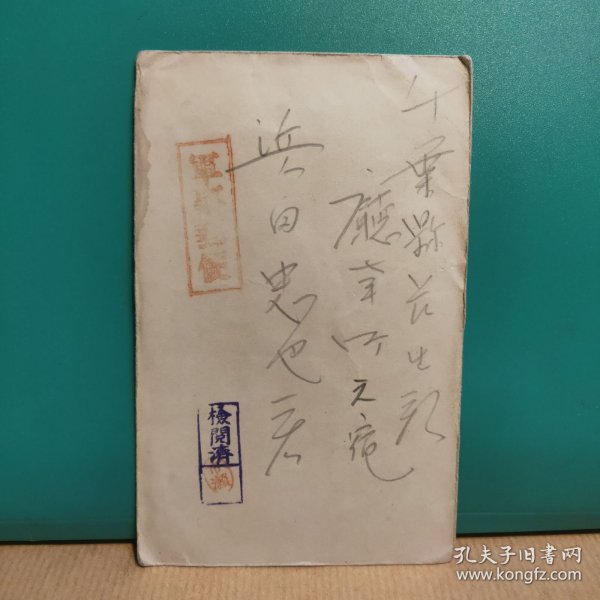 千葉縣長生郡
廳南町元宿
浜田忠也君
軍事郵便
檢閱濟
孔夫子旧书网
www.kongfz.com